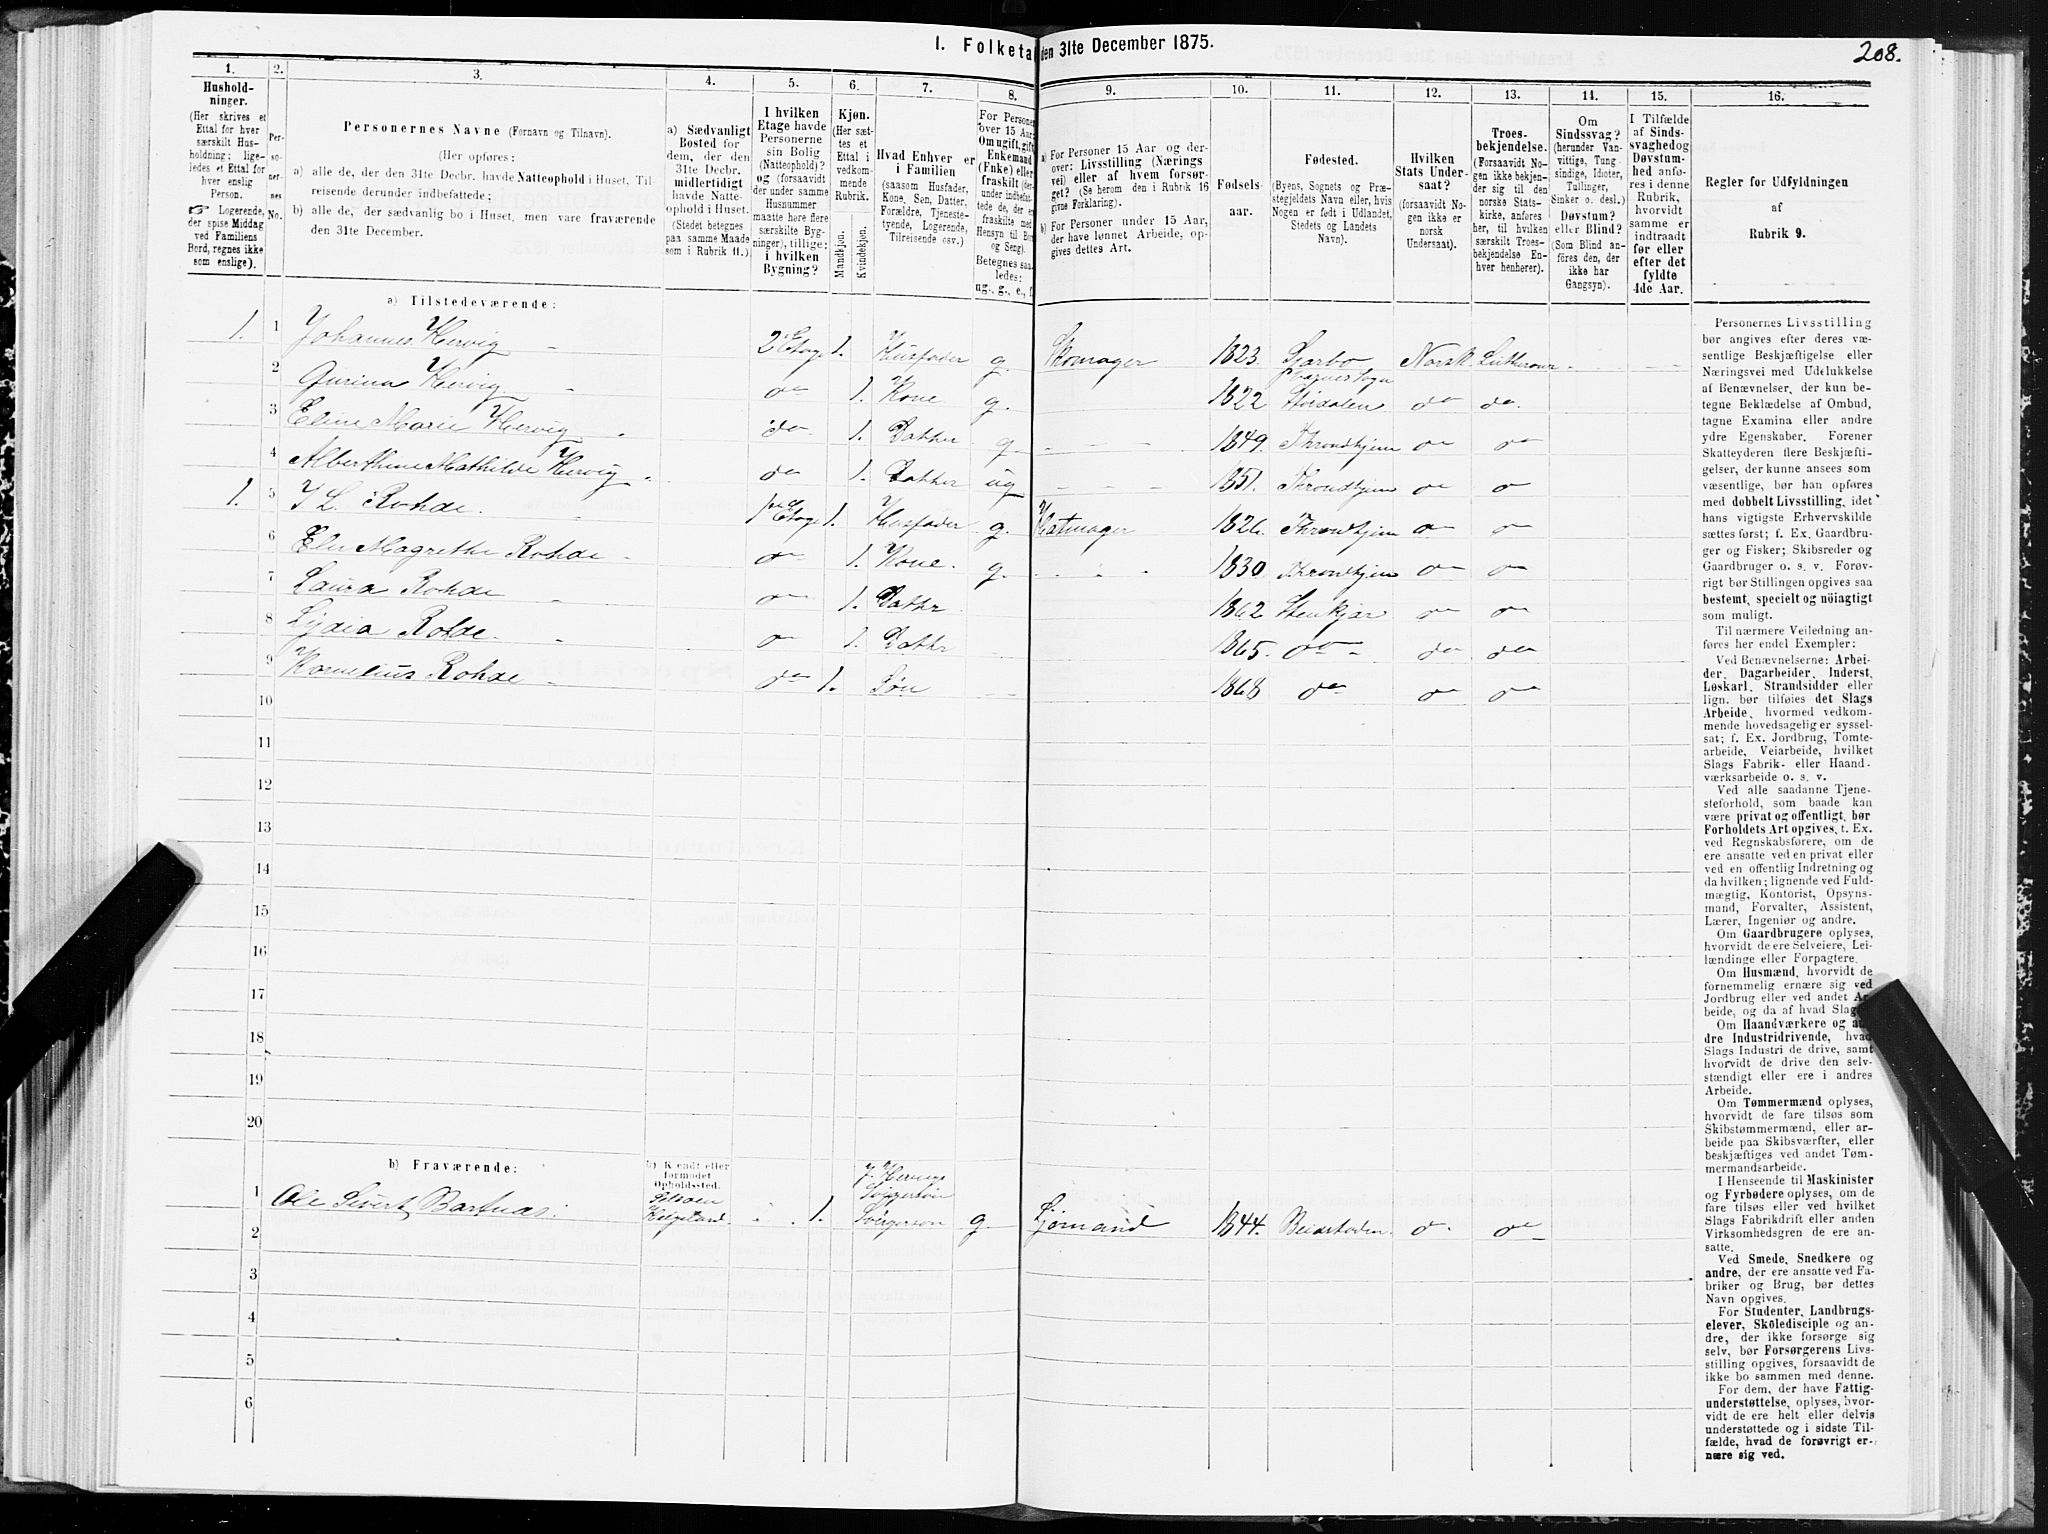 208.
I. Folketa
den 31te December 1875.
1. 2. 3. 4. 5. 6. 7. 8. 9. 10. 11. 12. 13. 14. 15. 16.
Hushold-
ninger.
(Her skrives et
Ettal for hver
særskilt Hus-
holdning; lige-
ledes et Ettal for
hver enslig
Person.
☞ Logerende,
der spise Middag
ved Familiens
Bord, regnes ikke
som enslige).
Per-
so-
ner-
nes
No.
Personernes Navne (Fornavn og Tilnavn).
(Her opføres:
a) alle de, der den 31te Decbr. havde Natteophold i Huset, Til-
reisende derunder indbefattede;
b) alle de, der sædvanlig bo i Huset, men vare fraværende
den 31te December.
a) Sædvanligt
Bosted for
dem, der den
31te Decbr.
midlertidigt
havde Natte-
ophold i Huset.
(Stedet betegnes
paa samme Maade
som i Rubrik 11.)
I hvilken
Etage havde
Personerne
sin Bolig
(Natteophold)?
og (forsaavidt
der under samme
Husnummer
maatte høre flere
særskilte Byg-
ninger), tillige:
i hvilken
Bygning?
Kjøn.
(Her sæt-
tes et
Ettal i
vedkom-
mende
Rubrik.
Mandkjøn.
Kvindekjøn.
Hvad Enhver er
i Familien
(saasom Husfader,
Kone, Søn, Datter,
Forældre, Tjeneste-
tyende, Logerende,
Tilreisende osv.)
For Personer
over 15 Aar:
Om ugift, gift,
Enkemand
(Enke) eller
fraskilt (der-
under indbefat-
tede de, der ere
fraskilte med
Hensyn til Bord
og Seng).
Betegnes saa-
ledes:
ug., g., e., f.
a) For Personer 15 Aar og der-
over: Livsstilling (Nærings-
vei) eller af hvem forsør-
get? (Se herom den i Rubrik 16
givne Forklaring).
b) For Personer under 15 Aar,
der have lønnet Arbeide, op-
gives dettes Art.
Fødsels-
aar.
Fødested.
(Byens, Sognets og Præ-
stegjeldets Navn eller, hvis
Nogen er født i Udlandet,
Stedets og Landets
Navn).
Hvilken
Stats Under-
saat?
(forsaavidt No-
gen ikke er
norsk
Undersaat).
Troes-
bekjendelse.
(Forsaavidt No-
gen ikke bekjen-
der sig til den
norske Stats-
kirke, anføres
her, til hvilken
særskilt Troes-
bekjendelse En-
hver henhører).
Om
Sindssvag?
(herunder Van-
vittige, Tung-
sindige, Idioter,
Tullinger,
Sinker o. desl.)
Døvstum?
eller Blind?
(Som Blind an-
føres den, der
ikke har
Gangsyn).
I Tilfælde
af Sinds-
svaghed og
Døvstum-
hed anfø-
res i denne
Rubrik,
hvorvidt
samme er
indtraadt
før eller
efter det
fyldte
4de Aar.
Regler for Udfyldningen
af
Rubrik 9.
a) Tilstedeværende:
1. 1 Johannes Hervig 2 Etage 1. Husfader g. Skomager 1823. Norsk
2 Gurina Hervig do 1. Kone g. 1822 do do
3 Eline Marie Hervig do 1. Datter g 1849. Throndhjem do do
4 Alberthine Mathilde Hervig do 1. Datter ug 1851. Throndhjem do do
1. 5 Rohde. Etage 1. Husfader g. Hatmager 1826. Throndhjem do do
6 Elen Magrethe Rohde do 1. Kone. g. 1830. Throndhjem do do
7 Laura Rohde do 1. Datter 1862 Stenkjær do do
8 Lydia Rohde. do 1. Datter 1865. do do do
9 Kornelius Rohde do 1. Søn 1868 do do do
10
11
12
13
14
15
16
17
18
19
20
b) Fraværende:
b) Kjendt eller
formodet
Opholdssted.
J. Hervigs
1 Ole Sivert 1. Svigersøn g. Sjømand 1844. Beidstaden. do do
2
3
4
5
6
Personernes Livsstilling
bør angives efter deres væ-
sentlige Beskjæftigelse eller
Næringsvei med Udelukkelse
af Benævnelser, der kun be-
tegne Beklædelse af Ombud,
tagne Examina eller andre
ydre Egenskaber. Forener
Skatteyderen flere Beskjæfti-
gelser, der kunne ansees som
væsentlige, bør han opføres
med dobbelt Livsstilling, idet
hans vigtigste Erhvervskilde
sættes først; f. Ex. Gaardbru-
ger og Fisker; Skibsreder og
Gaardbruger o. s. v. Forøv-
rigt bør Stillingen opgives saa
bestemt, specielt og nöiagtigt
som muligt.
Til nærmere Veiledning an-
føres her endel Exempler:
Ved Benævnelserne: Arbei-
der, Dagarbeider, Inderst,
Løskarl, Strandsidder eller
lign. bør tilføies det Slags
Arbeide, hvormed vedkom-
mende hovedsagelig er syssel-
sat; f. Ex. Jordbrug, Tomte-
arbeide, Veiarbeide, hvilket
Slags Fabrik- eller Haand-
værksarbeide o. s. v.
Ved alle saadanne Tjene-
steforhold, som baade kan
være privat og offentligt, bør
Forholdets Art opgives, t. Ex.
ved Regnskabsførere, om de
ere ansatte ved en privat eller
ved en offentlig Indretning og
da hvilken; lignende ved Fuld-
mægtig, Kontorist, Opsyns-
mand, Forvalter, Assistent,
Lærer, Ingeniør og andre.
Om Gaardbrugere oplyses,
hvorvidt de ere Selveiere, Lei-
lændinge eller Forpagtere.
Om Husmænd, hvorvidt de
fornemmelig ernære sig ved
Jordbrug eller ved andet Ar-
beide, og da af hvad Slags.
Om Haandværkere og an-
dre Industridrivende, hvad
Slags Industri de drive, samt
hvorvidt de drive den selv-
stændigt eller ere i andres
Arbeide.
Om Tømmermænd oplyses,
hvorvidt de fare tilsøs som
Skibstømmermænd, eller ar-
beide paa Skibsværfter, eller
beskjæftiges ved andet Tøm-
mermandsarbeide.
I Henseende til Maskinister
og Fyrbødere oplyses, om de
fare tilsøs eller ved hvilket
Slags Fabrikdrift eller anden
Virksomhedsgren de ere an-
satte.
Ved Smede, Snedkere og
andre, der ere ansatte ved Fa-
briker og Brug, bør dettes
Navn opgives.
For Studenter, Landbrugs-
elever, Skoledisciple og an-
dre, der ikke forsørge sig
selv, bør Forsørgerens Livs-
stilling opgives, forsaavidt de
ikke bo sammen med denne.
For dem, der have Fattig-
understøttelse, oplyses, hvor-
vidt de ere helt eller delvis
understøttede og i sidste Til-
fælde, hvad de forøvrigt er-
nære sig ved.